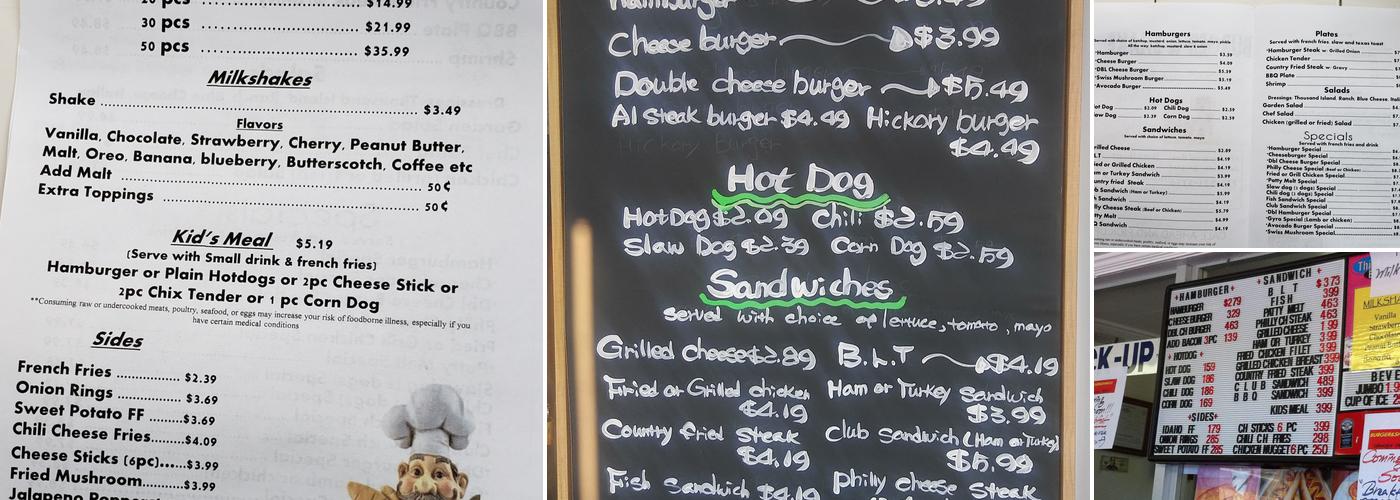 20 pcs ........ $14.99
30 pcs ........ $21.99
50 pcs ........ $35.99
Milkshakes
Shake ........ $3.49
Flavors
Vanilla, Chocolate, Strawberry, Cherry, Peanut Butter,
Malt, Oreo, Banana, blueberry, Butterscotch, Coffee etc
Add Malt ........ 50¢
Extra Toppings ........ 50¢
Kid's Meal $5.19
(Serve with Small drink & french fries)
Hamburger or Plain Hotdogs or 2pc Cheese Stick or
2pc Chix Tender or 1 pc Corn Dog
**Consuming raw or undercooked meats, poultry, seafood, or eggs may increase your risk of foodborne illness, especially if you
have certain medical conditions
Sides
French Fries ........ $2.39
Onion Rings ........ $3.69
Sweet Potato FF ........ $3.69
Chili Cheese Fries........$4.09
Cheese Sticks (6pc)......$3.99
Fried Mushroom........$3.99
Jalapeno
Hamburger
Cheese burger $3.99
Double cheese burger $5.49
A1 Steak burger $4.49 Hickory burger
$4.49
Hickory Burger
Hot Dog
Hot Dog $2.09 Chili $2.59
Slaw Dog $2.39 Corn Dog $2.59
Sandwiches
served with choice of lettuce, tomato, mayo
Grilled cheese $2.89 B.L.T $4.19
Fried or Grilled chicken Ham or Turkey Sandwich
$4.19 $3.99
Country fried Steak Club Sandwich (Ham or Turkey)
$4.19 $5.99
Fish Sandwich $4.19 philly cheese Steak
Hamburgers
Served with choice of ketchup, mustard, onion, lettuce, tomato, mayo, pickle
All the way: ketchup, mustard, slaw & onion
Hamburger $3.59
Cheese Burger $4.09
DBL Cheese Burger $5.59
Swiss Mushroom Burger $5.19
Avocado Burger $5.49
Hot Dogs
Hot Dog $2.09 Chili Dog $2.59
Slaw Dog Corn Dog $2.59
Sandwiches
Served with choice of lettuce, tomato, mayo
Grilled Cheese $2.89
BLT $4.19
Fried or Grilled Chicken $4.19
Country fried Steak $4.19
Club Sandwich (Ham or Turkey)
Philly Cheese Steak (Beef or Chicken) $5.79
Patty Melt
Sandwich $4.19
Plates
Served with french fries, slaw and texas toast
Hamburger Steak w. Grilled Onion
Chicken Tender
Country Fried Steak w. Gravy
BBQ Plate
Shrimp
Salads
Dressings: Thousand Island, Ranch, Blue Cheese,
Garden Salad
Chef Salad
Chicken (grilled or fried) Salad
Specials
Served with french fries and drink
Hamburger Special
Cheeseburger Special
Dbl Cheese Burger Special
Philly Cheese Special (Beef or Chicken)
Fried or Grill Chicken Special
Patty Melt Special
Slaw dog (2 dogs) Special
Chili dog (2 dogs) Special
Fish Sandwich Special
Club Sandwich Special
Dbl Hamburger Special
Gyro Special (Lamb or chicken)
Swiss Mushroom Special
CK-UP
+HAMBURGER+
HAMBURGER $279
CHEESEBURGER 329
DBL CH BURGER 463
ADD BACON 3PC 139
+HOTDOG+
HOT DOG 159
SLAW DOG 186
CHILI DOG 186
CORN DOG 169
+SIDES+
IDAHO FF 179
ONION RINGS 285
SWEET POTATO FF 285
+SANDWICH+
BLT $373
FISH 399
PATTY MELT 463
PHILLY CH STEAK 463
GRILLED CHEESE 199
HAM OR TURKEY 399
FRIED CHICKEN FILET 399
GRILLED CHICKEN BREAST 399
COUNTRY FRIED STEAK 399
CLUB SANDWICH 489
BBQ SANDWICH 399
KIDS MEAL 399
CH STICKS 6 PC 399
CHILI CH FRIES 298
CHICKEN NUGGET 6 PC 250
MILKSHA
Vanilla
Strawber
BEVE
JUMBO 1.9
CUP OF ICE